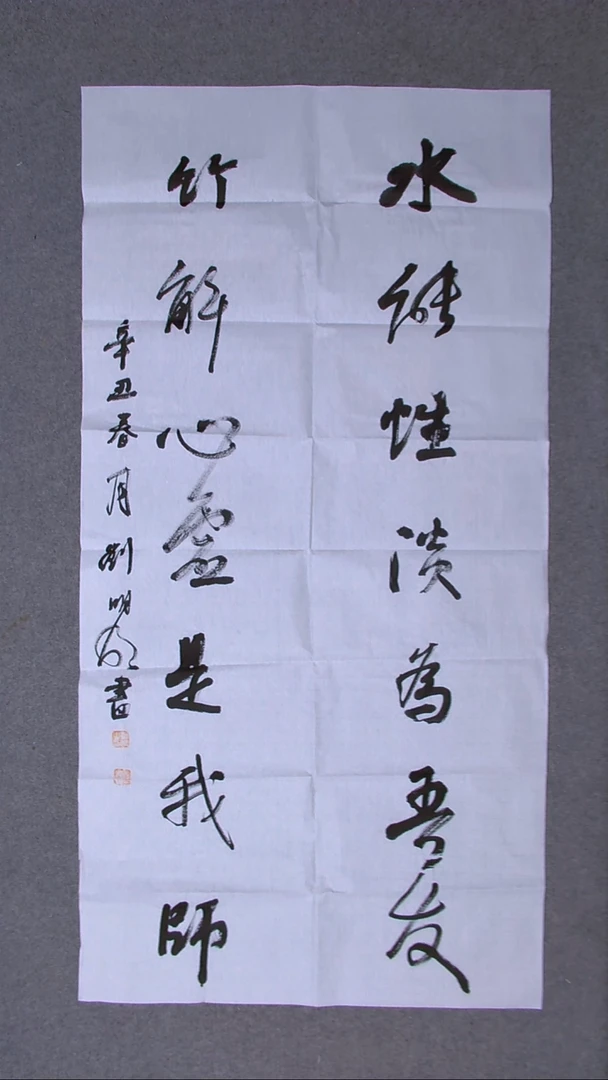 水能性淡為吾友
竹解心虛是我師
辛丑春月劉明書